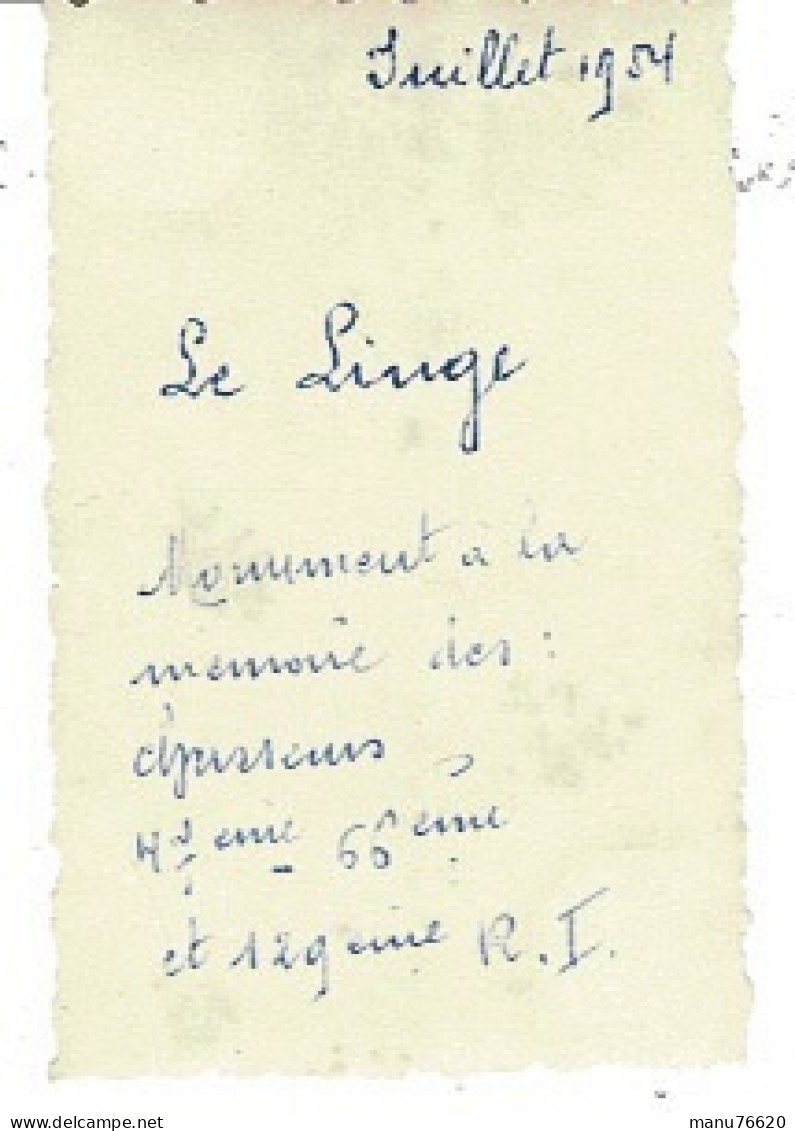 Juillet 1954
Le Linge
Monument à la
mémoire des :
chasseurs
47eme - 66eme
et 129eme R.I.
manu76620